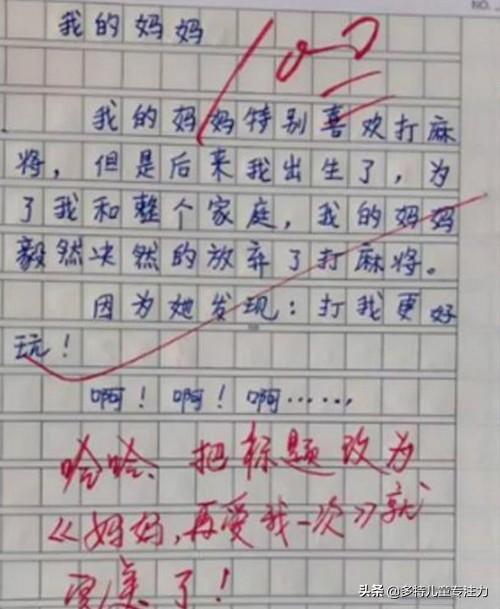 NO.
我的妈妈
我的妈妈特别喜欢打麻
将，但是后来我出生了，为
了我和整个家庭，我的妈妈
毅然决然的放弃了打麻将。
因为她发现：打我更好
玩！
啊！啊！啊……
哈哈、把标题改为
《妈妈，再爱我一次》就
更美了！
头条 @多特儿童专注力